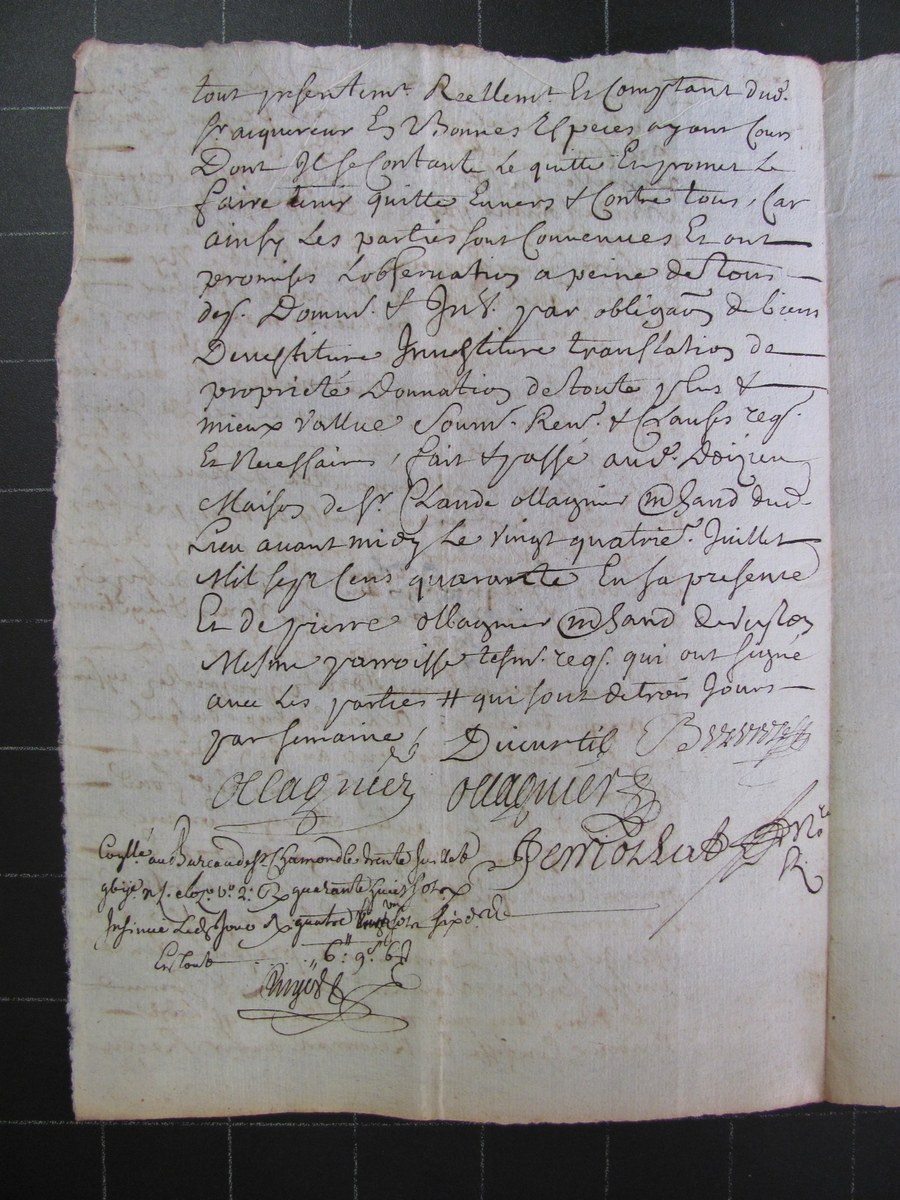 tout presentemt. Reellemt. Et Comptant dud.
sr. aiquereur En Bonnes Especes ayant Cours
Dont Il se Contante Le quitte Et promet Le
faire tenir quitte Envers & Contre tous, Car
ainsy Les parties sont Convenues Et ont
promises Lobservation a peine de tous
des. Domm. & Int. par obligaon de biens
Devestiture Investiture translation de
propriété Donnation de toute plus &
mieux vallue Soum. Ren. & Clauses req.
Et Necessaires, fait & passé aud. Doizieu
Maison de Sr. Claude ollagnier mchand dud.
Lieu avant midy Le vingt quatrie. Juillet
Mil sept Cens quarante En sa presence
Et de pierre ollagnier mchand de
Mesme parroisse tesm. req. qui ont signé
avec Les parties # qui sont de trois Jours
par semaine
Ducurtil
ollagnier ollagnier
Perrochat
Conllé au Bureau de St Chamond le trente Juillet
quarante huit sols
Insinué Led. Jour quatre sols six d.
En tout 6 : 9 s 6 d